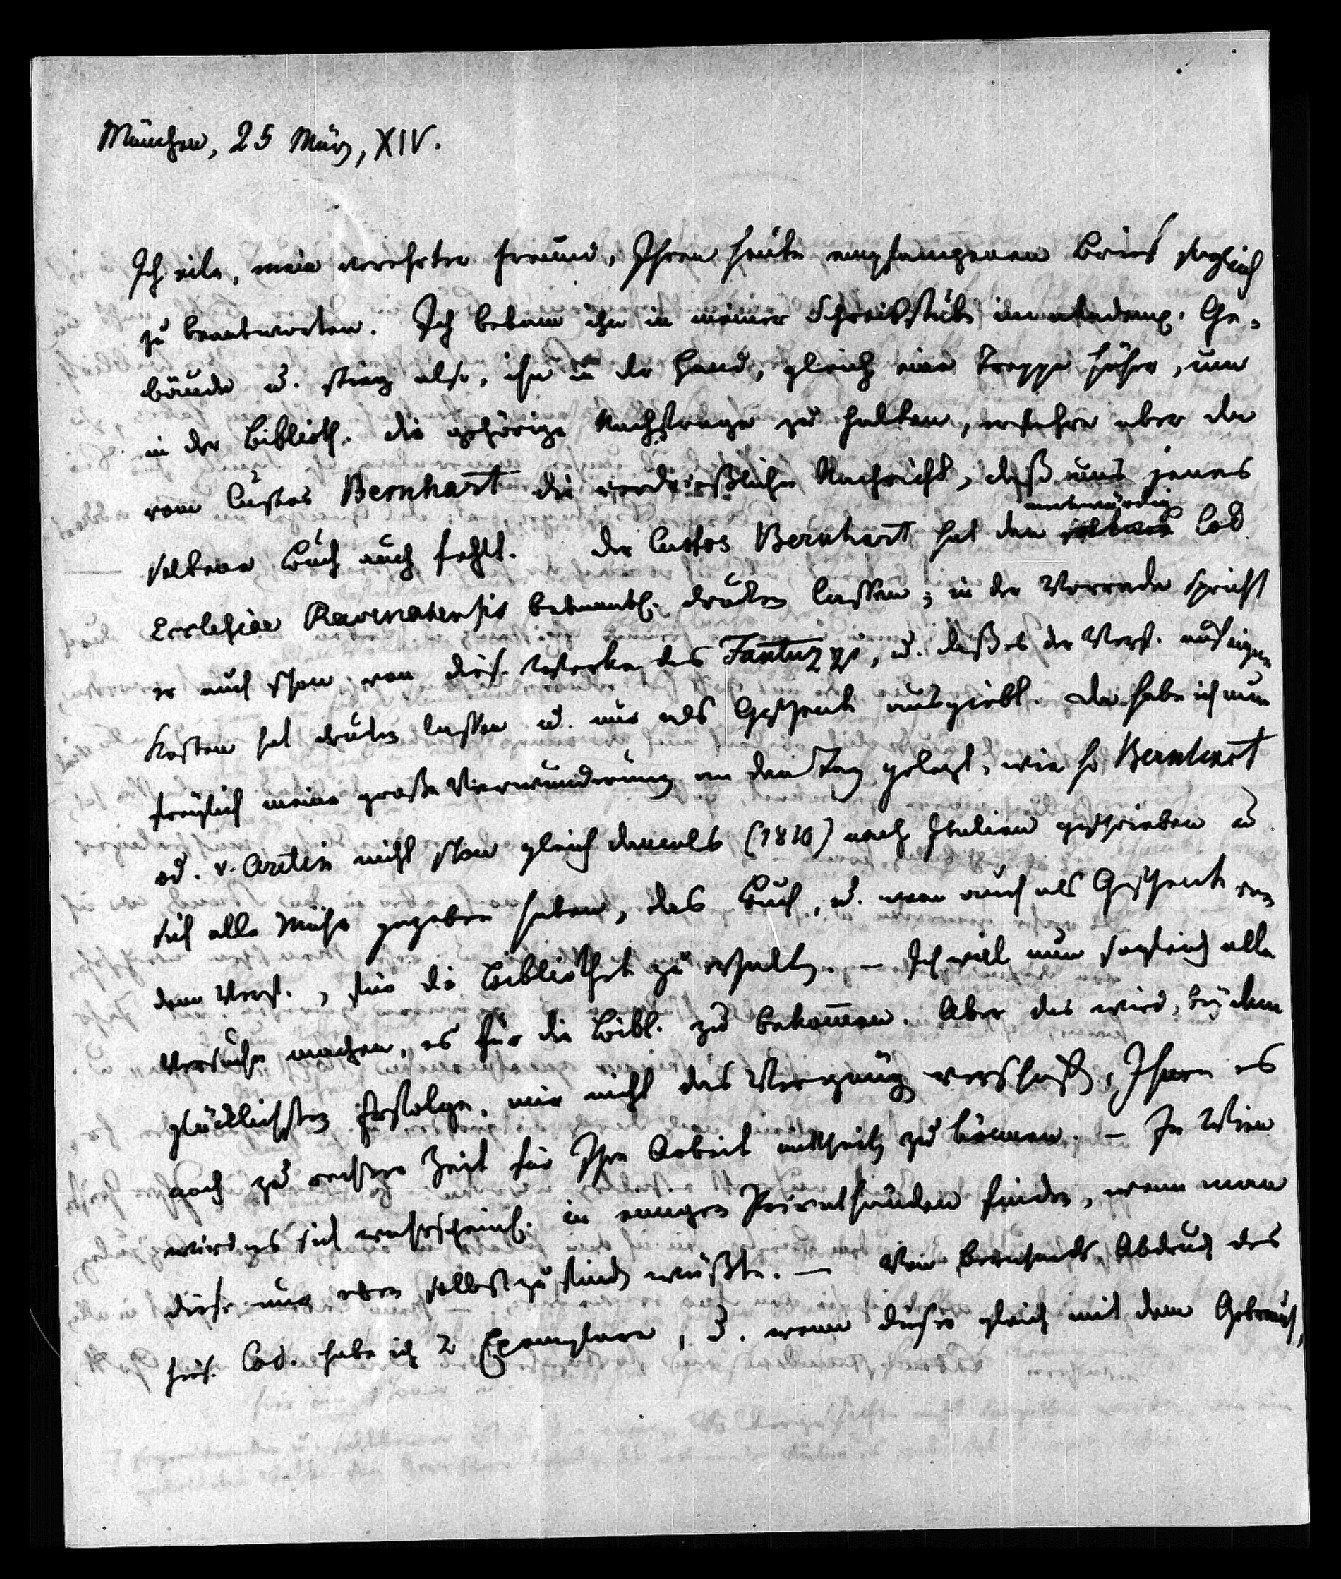 München, 25 März, XIV.
Ich eile, mein verehrter Freund, Ihren heute empfangenen Brief sogleich
zu beantworten. Ich bekam ihn in meiner Schreibstube im akadem. Ge-
bäude u. stieg also, ihn in der Hand, gleich eine Treppe höher, um
in der Biblioth. die gehörige Nachfrage zu halten, erfahre aber da
vom Custos Bernhart die verdrießliche Nachricht, daß uns jenes
seltene Buch auch fehlt. Der Custos Bernhart hat den merkwürdig. Cod.
Ecclesiae Ravennatensis bekanntl. drucken lassen; in der Vorrede spricht
er auch schon von dies. Werke des Fantuzzi, u. daß es der Verf. auf eigne
Kosten hat drucken lassen u. nur als Geschenk ausgiebt. Da habe ich nun
freylich meine große Verwunderung an den Tag gelegt, wie H. Bernhart
od. v. Aretin nicht schon gleich damals (1810) nach Italien geschrieben u.
sich alle Mühe gegeben haben, das Buch, u. wär auch als Geschenk von
dem Verf., für die Bibliothek zu erhalten. – Ich will nun sogleich alle
Versuche machen, es für die Bibl. zu bekommen. Aber das wird, bey dem
glücklichsten Erfolge, mir nicht das Vergnügen verschaffen, Ihnen es
noch zu rechter Zeit für Ihre Arbeit mittheilen zu können. – In Wien
wird es sich wahrscheinl. in einigen Privathänden finden, wenn man
diese nur eben selbst zu finden wüßte. – Von Bernhards Abdruck des
hies. Cod. habe ich 2 Exemplare, u. wenn dieses gleich mit dem Gebrauch,